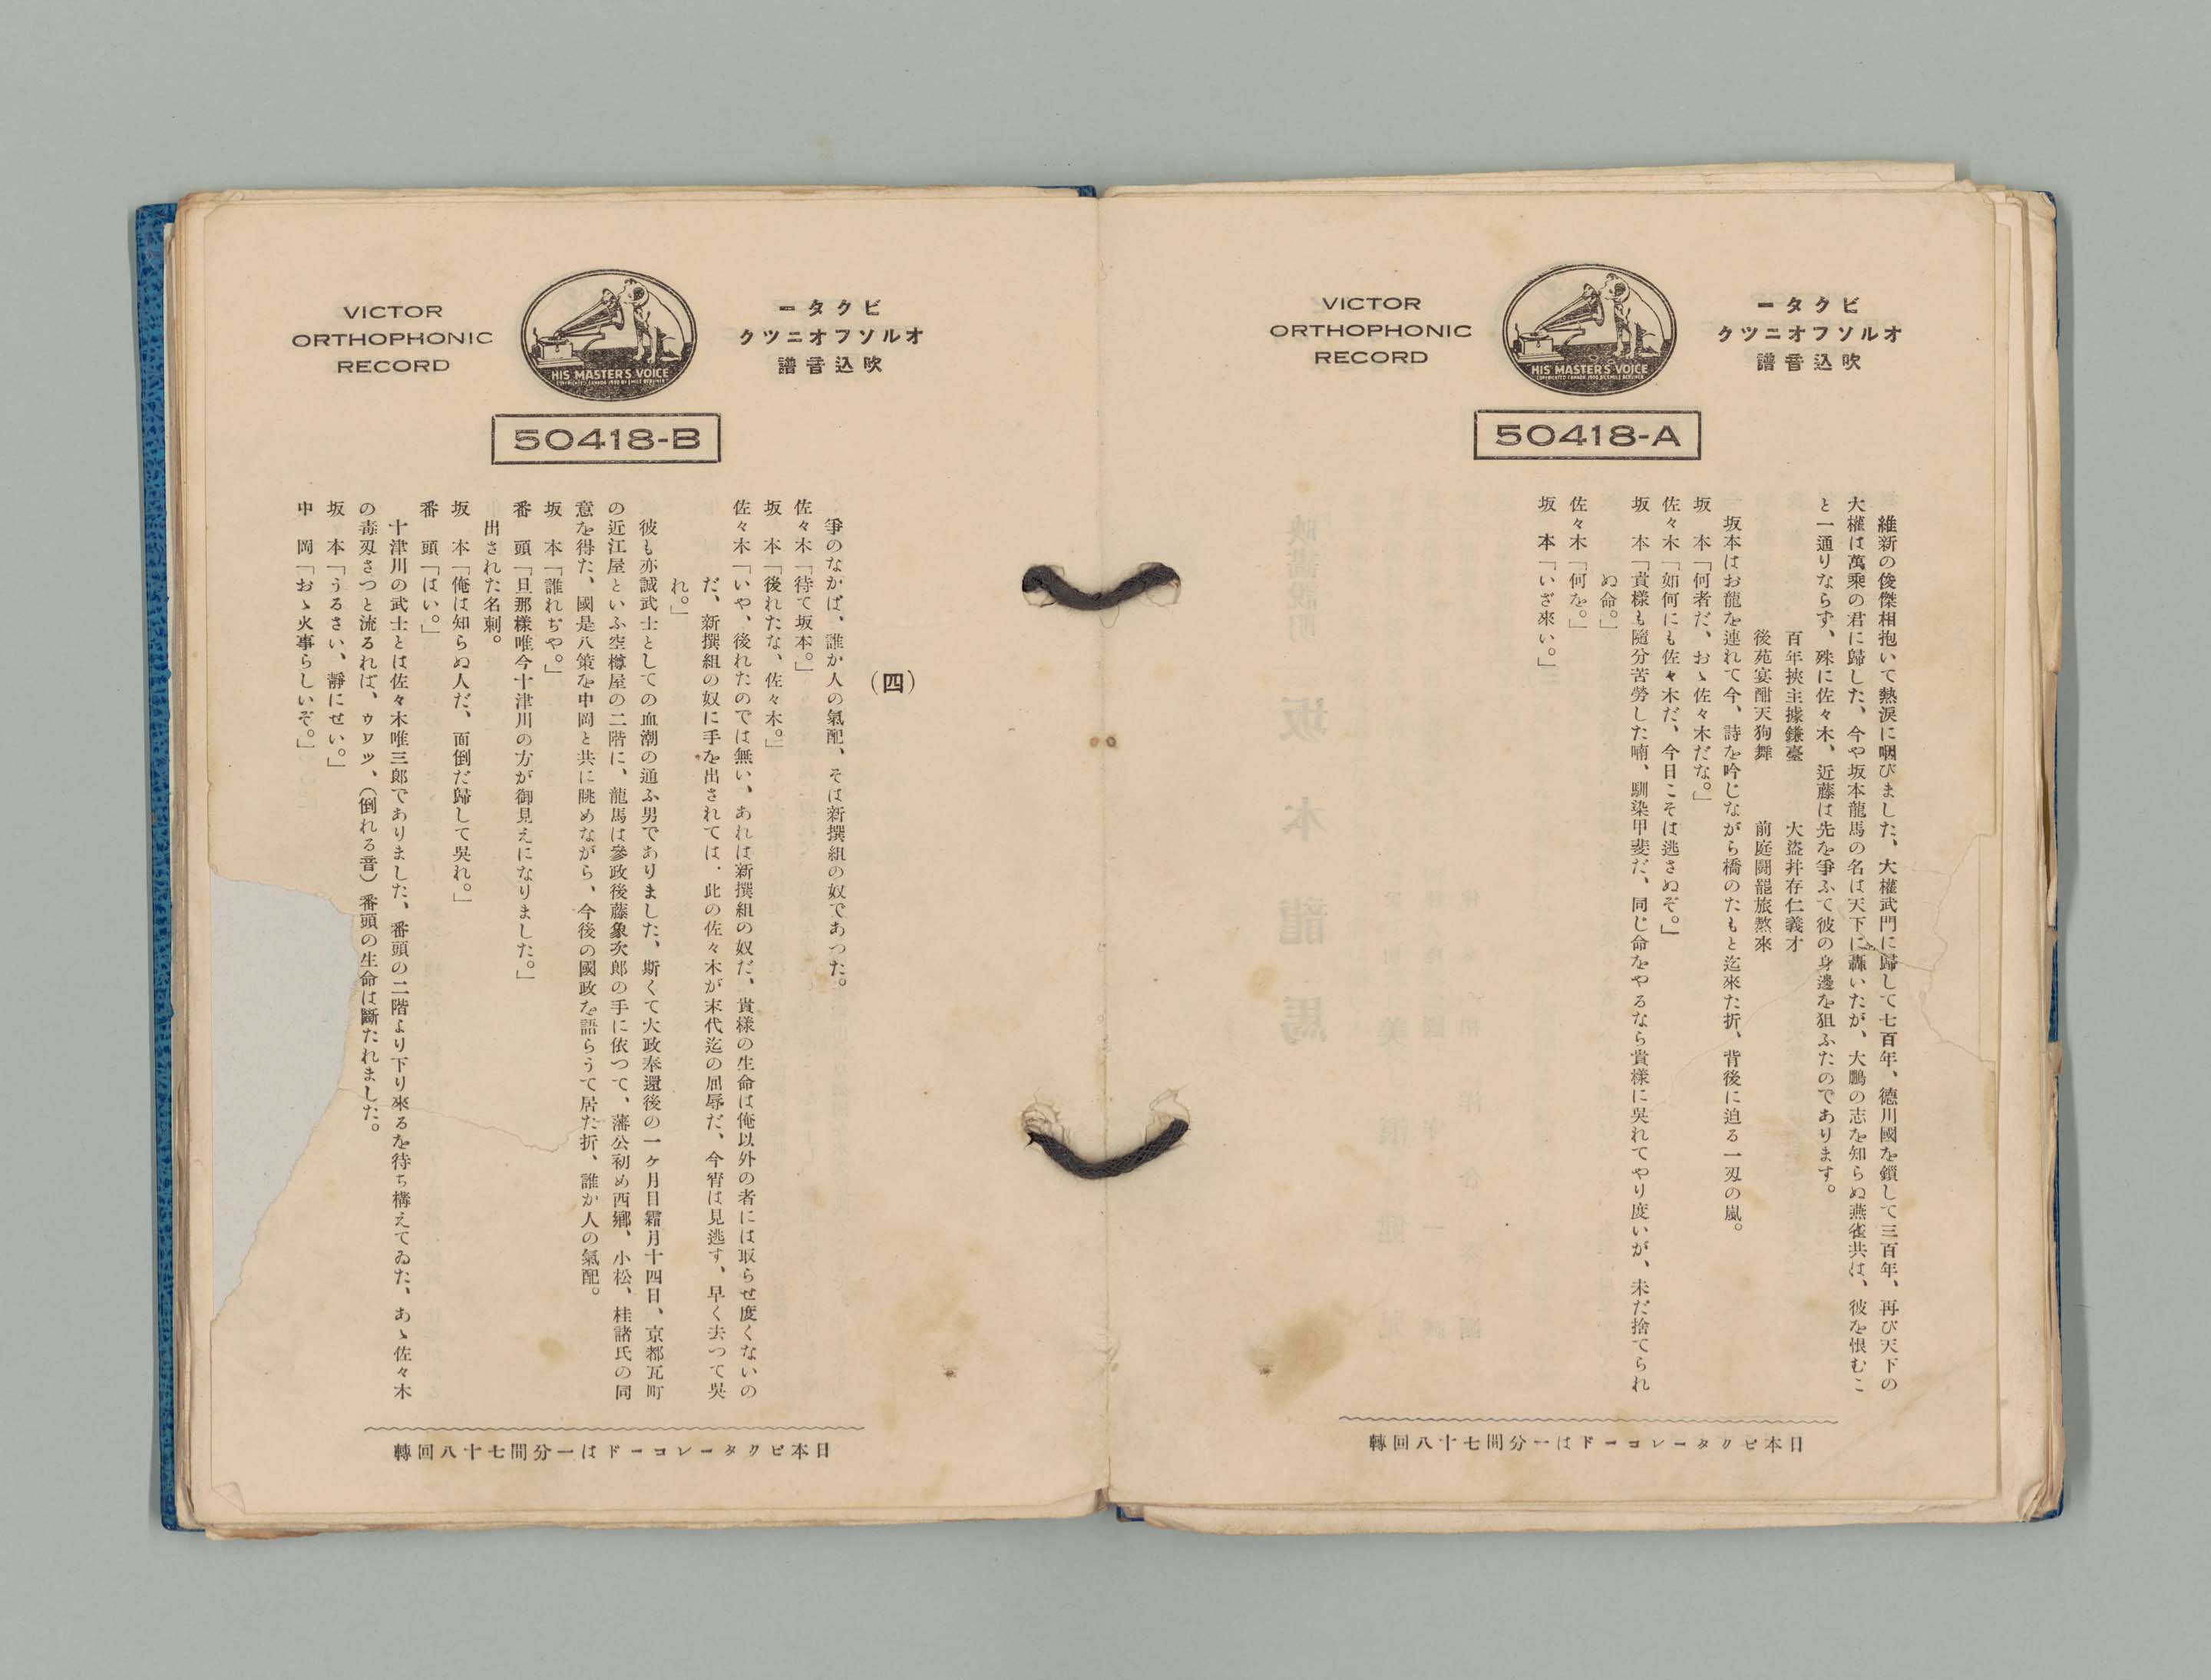 ビクター
オルソフオニツク
吹込音譜
HIS MASTER'S VOICE
VICTOR
ORTHOPHONIC
RECORD
50418-A
維新の俊傑相抱いて熱涙に咽びました、大權武門に歸して七百年、德川國を鎖して三百年、再び天下の
大權は萬乘の君に歸した、今や坂本龍馬の名は天下に轟いたが、大鵬の志を知らぬ燕雀共は、彼を恨むこ
と一通りならず、殊に佐々木、近藤は先を爭ふて彼の身邊を狙ふたのであります。
百年挾主據鎌臺　大盜幷存仁義才
後苑宴酣天狗舞　前庭鬪罷旅獒來
坂本はお龍を連れて今、詩を吟じながら橋のたもと迄來た折、背後に迫る一刄の嵐。
坂　本「何者だ、おゝ佐々木だな。」
佐々木「如何にも佐々木だ、今日こそは逃さぬぞ。」
坂　本「貴樣も隨分苦勞した喃、馴染甲斐だ、同じ命をやるなら貴樣に呉れてやり度いが、未だ捨てられ
ぬ命。」
佐々木「何を。」
坂　本「いざ來い。」
日本ビクターレコードは一分間七十八回轉
ビクター
オルソフオニツク
吹込音譜
HIS MASTER'S VOICE
VICTOR
ORTHOPHONIC
RECORD
50418-B
（四）
爭のなかば、誰か人の氣配、そは新撰組の奴であつた。
佐々木「待て坂本。」
坂　本「後れたな、佐々木。」
佐々木「いや、後れたのでは無い、あれは新撰組の奴だ、貴樣の生命は俺以外の者には取らせ度くないの
だ、新撰組の奴に手を出されては、此の佐々木が末代迄の屈辱だ、今宵は見逃す、早く去つて呉
れ。」
彼も亦誠武士としての血潮の通ふ男でありました、斯くて大政奉還後の一ヶ月目霜月十四日、京都瓦町
の近江屋といふ空樽屋の二階に、龍馬は參政後藤象次郎の手に依つて、藩公初め西鄕、小松、桂諸氏の同
意を得た、國是八策を中岡と共に眺めながら、今後の國政を語らうて居た折、誰か人の氣配。
坂　本「誰れぢや。」
番　頭「旦那樣唯今十津川の方が御見えになりました。」
出された名刺。
坂　本「俺は知らぬ人だ、面倒だ歸して呉れ。」
番　頭「はい。」
十津川の武士とは佐々木唯三郎でありました、番頭の二階より下り來るを待ち構えてゐた、あゝ佐々木
の毒刄さつと流るれば、ウワッ、（倒れる音）番頭の生命は斷たれました。
坂　本「うるさい、靜にせい。」
中　岡「おゝ火事らしいぞ。」
日本ビクターレコードは一分間七十八回轉